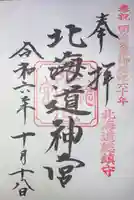 奉拝
北海道神宮
令和六年十月十八日
北海道総鎮守